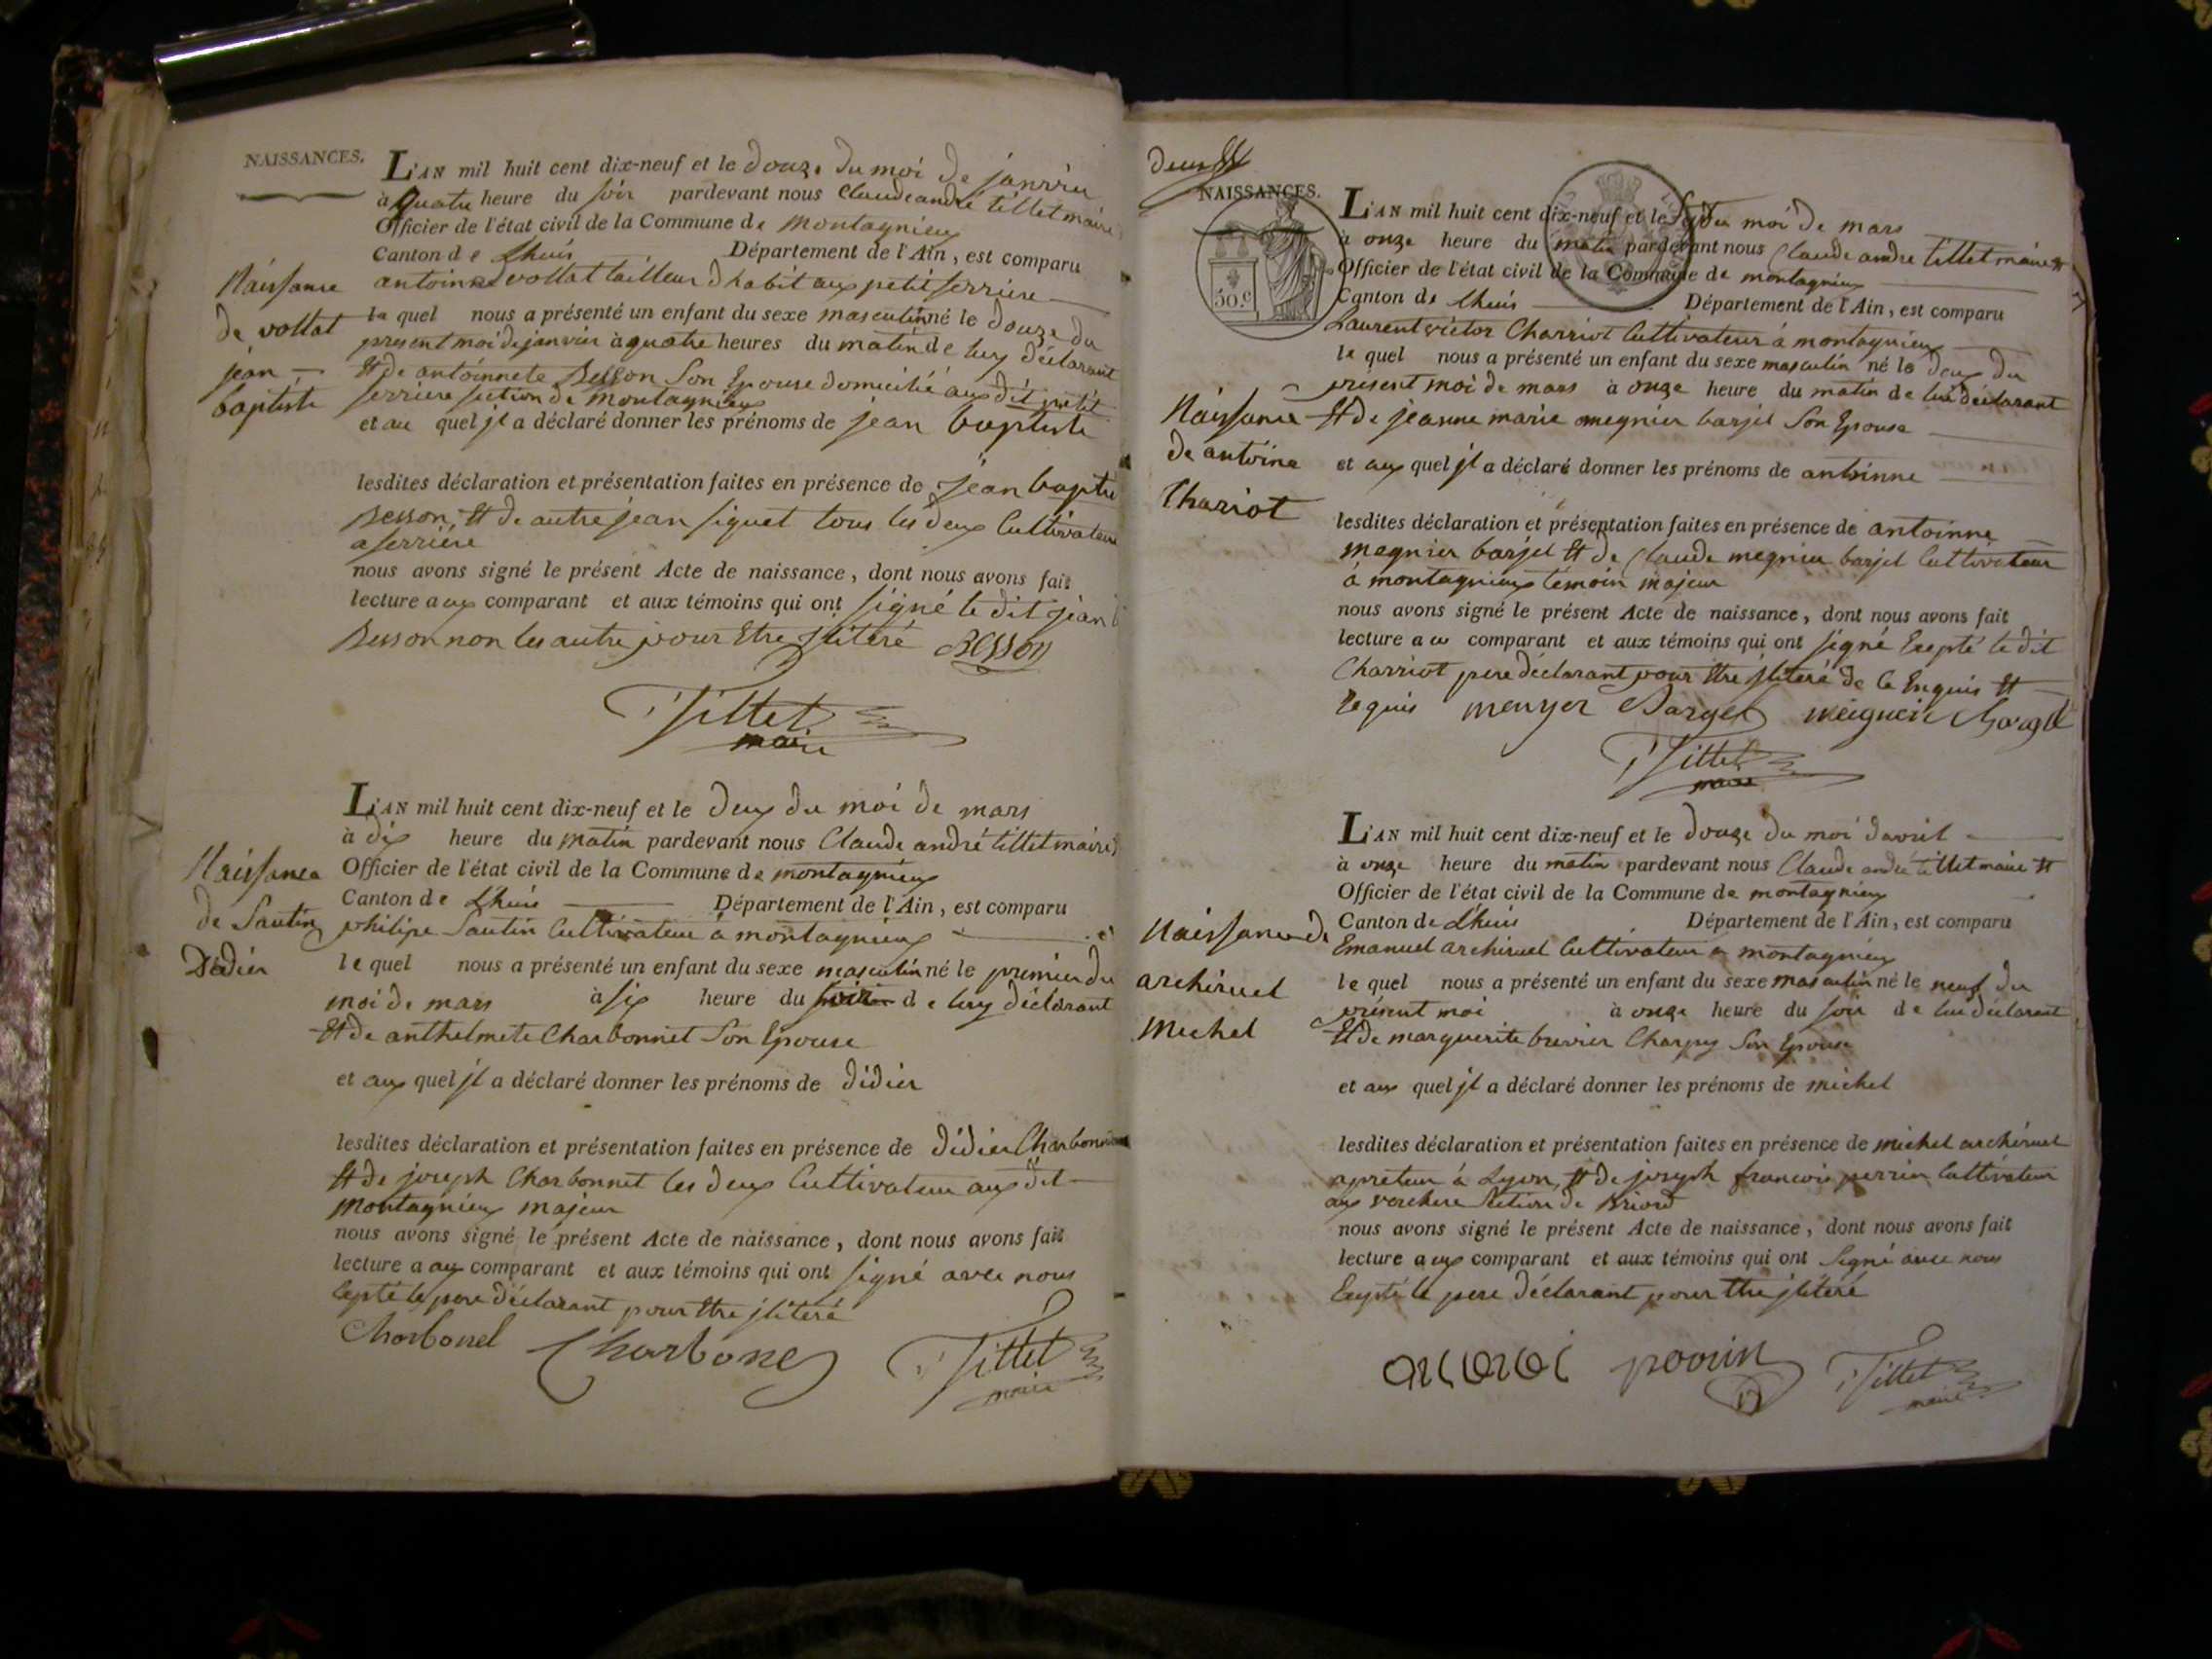 NAISSANCES.
L'AN mil huit cent dix-neuf et le douze du moi de janvier
à quatre heure du soir pardevant nous Claude andre tillet maire
Officier de l'état civil de la Commune de montagnieu
Canton de Lhuis Département de l'Ain, est comparu
antoinne vollat tailleur d habit aux petit serriere
Naissance
de vollat
jean
baptiste
le quel nous a présenté un enfant du sexe masculin né le douze du
present moi de janvier à quatre heures du matin de luy déclarant
et de antoinnete Besson Son Epouse domicilié aux dit petit
serriere section de montagnieu
et au quel jl a déclaré donner les prénoms de jean baptiste
lesdites déclaration et présentation faites en présence de jean baptiste
Besson et de autre jean siquet tous les deux Cultivateur
a serriere
nous avons signé le présent Acte de naissance, dont nous avons fait
lecture aux comparant et aux témoins qui ont signé le dit jean
Besson non les autre pour Etre jliteré Besson
Tillet
maire
L'AN mil huit cent dix-neuf et le deux du moi de mars
à dix heure du matin pardevant nous Claude andré tillet maire
Officier de l'état civil de la Commune de montagnieux
Canton de Lhuis Département de l'Ain, est comparu
philipe Sautin Cultivateur à montagnieux
Naissance
de Sautin
Dédier
le quel nous a présenté un enfant du sexe masculin né le premier du
moi de mars à six heure du soir de luy déclarant
et de anthelmete Charbonnet Son Epouse
et aux quel jl a déclaré donner les prénoms de didier
lesdites déclaration et présentation faites en présence de didier Charbonnet
et de joseph Charbonnet les deux Cultivateur aux dit
montagnieux majeur
nous avons signé le présent Acte de naissance, dont nous avons fait
lecture a aux comparant et aux témoins qui ont signé avec nous
Cepté le pere déclarant pour Etre jliteré
Charbonel Charbone Tillet
maire
deux
NAISSANCES.
30.c
L'AN mil huit cent dix-neuf et le du moi de mars
à onze heure du matin pardevant nous Claude andre tillet maire et
Officier de l'état civil de la Commune de montagnieu
Canton de Lhuis Département de l'Ain, est comparu
Laurent victor Charriot Cultivateur à montagnieux
le quel nous a présenté un enfant du sexe masculin né le deux du
present moi de mars à onze heure du matin de lui déclarant
Naissance
de antoine
Chariot
et de jeanne marie megnier barjel Son Epouse
et aux quel jl a déclaré donner les prénoms de antoinne
lesdites déclaration et présentation faites en présence de antoinne
megnier barjel et de Claude megnier barjel Cultivateur
à montagnieux temoin majeur
nous avons signé le présent Acte de naissance, dont nous avons fait
lecture a ce comparant et aux témoins qui ont signé Exepté le dit
Charriot pere déclarant pour Etre jliteré de Ce Enquis et
Requis menyer Bargel meiguein
Tillet
maire
L'AN mil huit cent dix-neuf et le douze du moi davril
à onze heure du matin pardevant nous Claude andre tillet maire et
Officier de l'état civil de la Commune de montagnieu
Canton de Lhuis Département de l'Ain, est comparu
Emanuel archiruel Cultivateur a montagnieu
Naissance de
archiruel
Michel
le quel nous a présenté un enfant du sexe masculin né le neuf du
présent moi à onze heure du soir de lui déclarant
et de marguerite brevier Charpy Son Epouse
et aux quel jl a déclaré donner les prénoms de michel
lesdites déclaration et présentation faites en présence de michel archéruel
apreteur à Lyon, et de joseph francois perrin Cultivateur
aux verchere Section de Briord
nous avons signé le présent Acte de naissance, dont nous avons fait
lecture aux comparant et aux témoins qui ont Signé avec nous
Exepté le pere déclarant pour Etre jliteré
perrin Tillet
maire